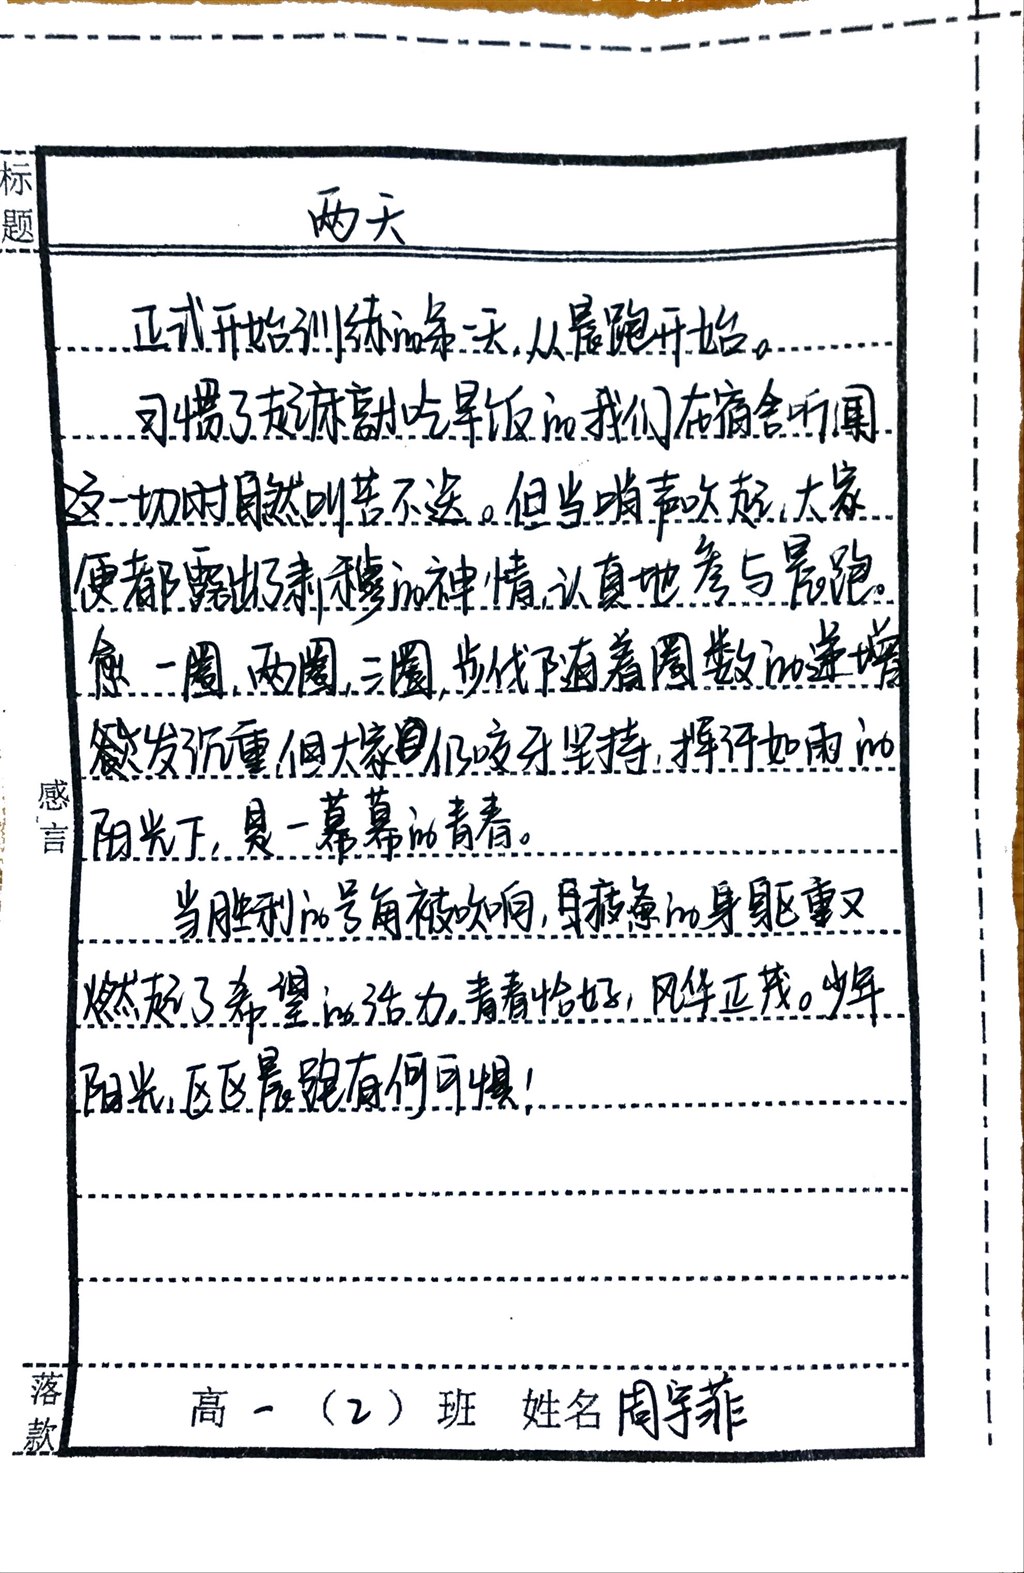 标题
两天
正式开始训练的第一天,从晨跑开始。
习惯了起床就吃早饭的我们在宿舍听闻
这一切时自然叫苦不迭。但当哨声吹起,大家
便都露出了肃穆的神情,认真地参与晨跑。
一圈,两圈,三圈,步伐随着圈数的递增
愈发沉重,但大家仍咬牙坚持,挥汗如雨的
阳光下,是一幕幕的青春。
当胜利的号角被吹响,疲惫的身躯重又
燃起了希望的活力。青春恰好,风华正茂。少年
阳光,区区晨跑有何可惧!
感言
落款
高一(2)班 姓名 周宇菲